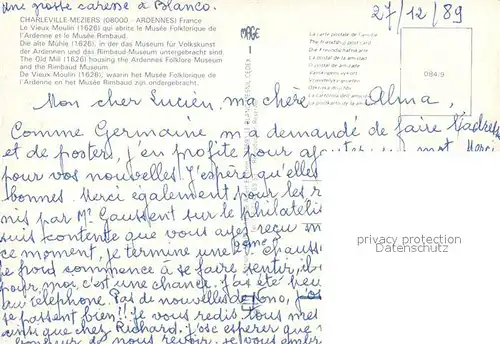 une grosse caresse à Blanco.
27/12/89
CHARLEVILLE-MEZIERES (08000 - ARDENNES) France
Le Vieux Moulin (1626) qui abrite le Musée Folklorique de
l'Ardenne et le Musée Rimbaud.
Die alte Mühle (1626), in der das Museum für Volkskunst
der Ardennen und das Rimbaud-Museum untergebracht sind.
The Old Mill (1626) housing the Ardennes Folklore Museum
and the Rimbaud Museum.
De Vieux Moulin (1626), waarin het Musée Folklorique de
l'Ardenne en het Musée Rimbaud zijn ondergebracht.
MAGE
La carte postale de l'amitié
The friendship post card
Die Freundschaftskarte
La postal de la amistad
O postal de amizade
La cartolina dell'amicizia
084/9
Mon cher Lucien, ma chère Alma,
Comme Germaine m'a demandé de faire l'adresse
et de poster, j'en profite pour ajouter un mot. Merci
pour vos nouvelles. J'espère qu'elles
bonnes. Merci également pour les
par Mr Gaussent sur le
suis contente que vous ayez reçu
ce moment, je termine une 2ème
le froid commence à se faire sentir, il
pour moi, c'est une chance. J'ai été
au téléphone. Pas de nouvelles de Nono,
se passent bien!! Je vous redis tous mes
ainsi que chez Richard. J'ose espérer que
de vous revoir.
privacy protection
Datenschutz